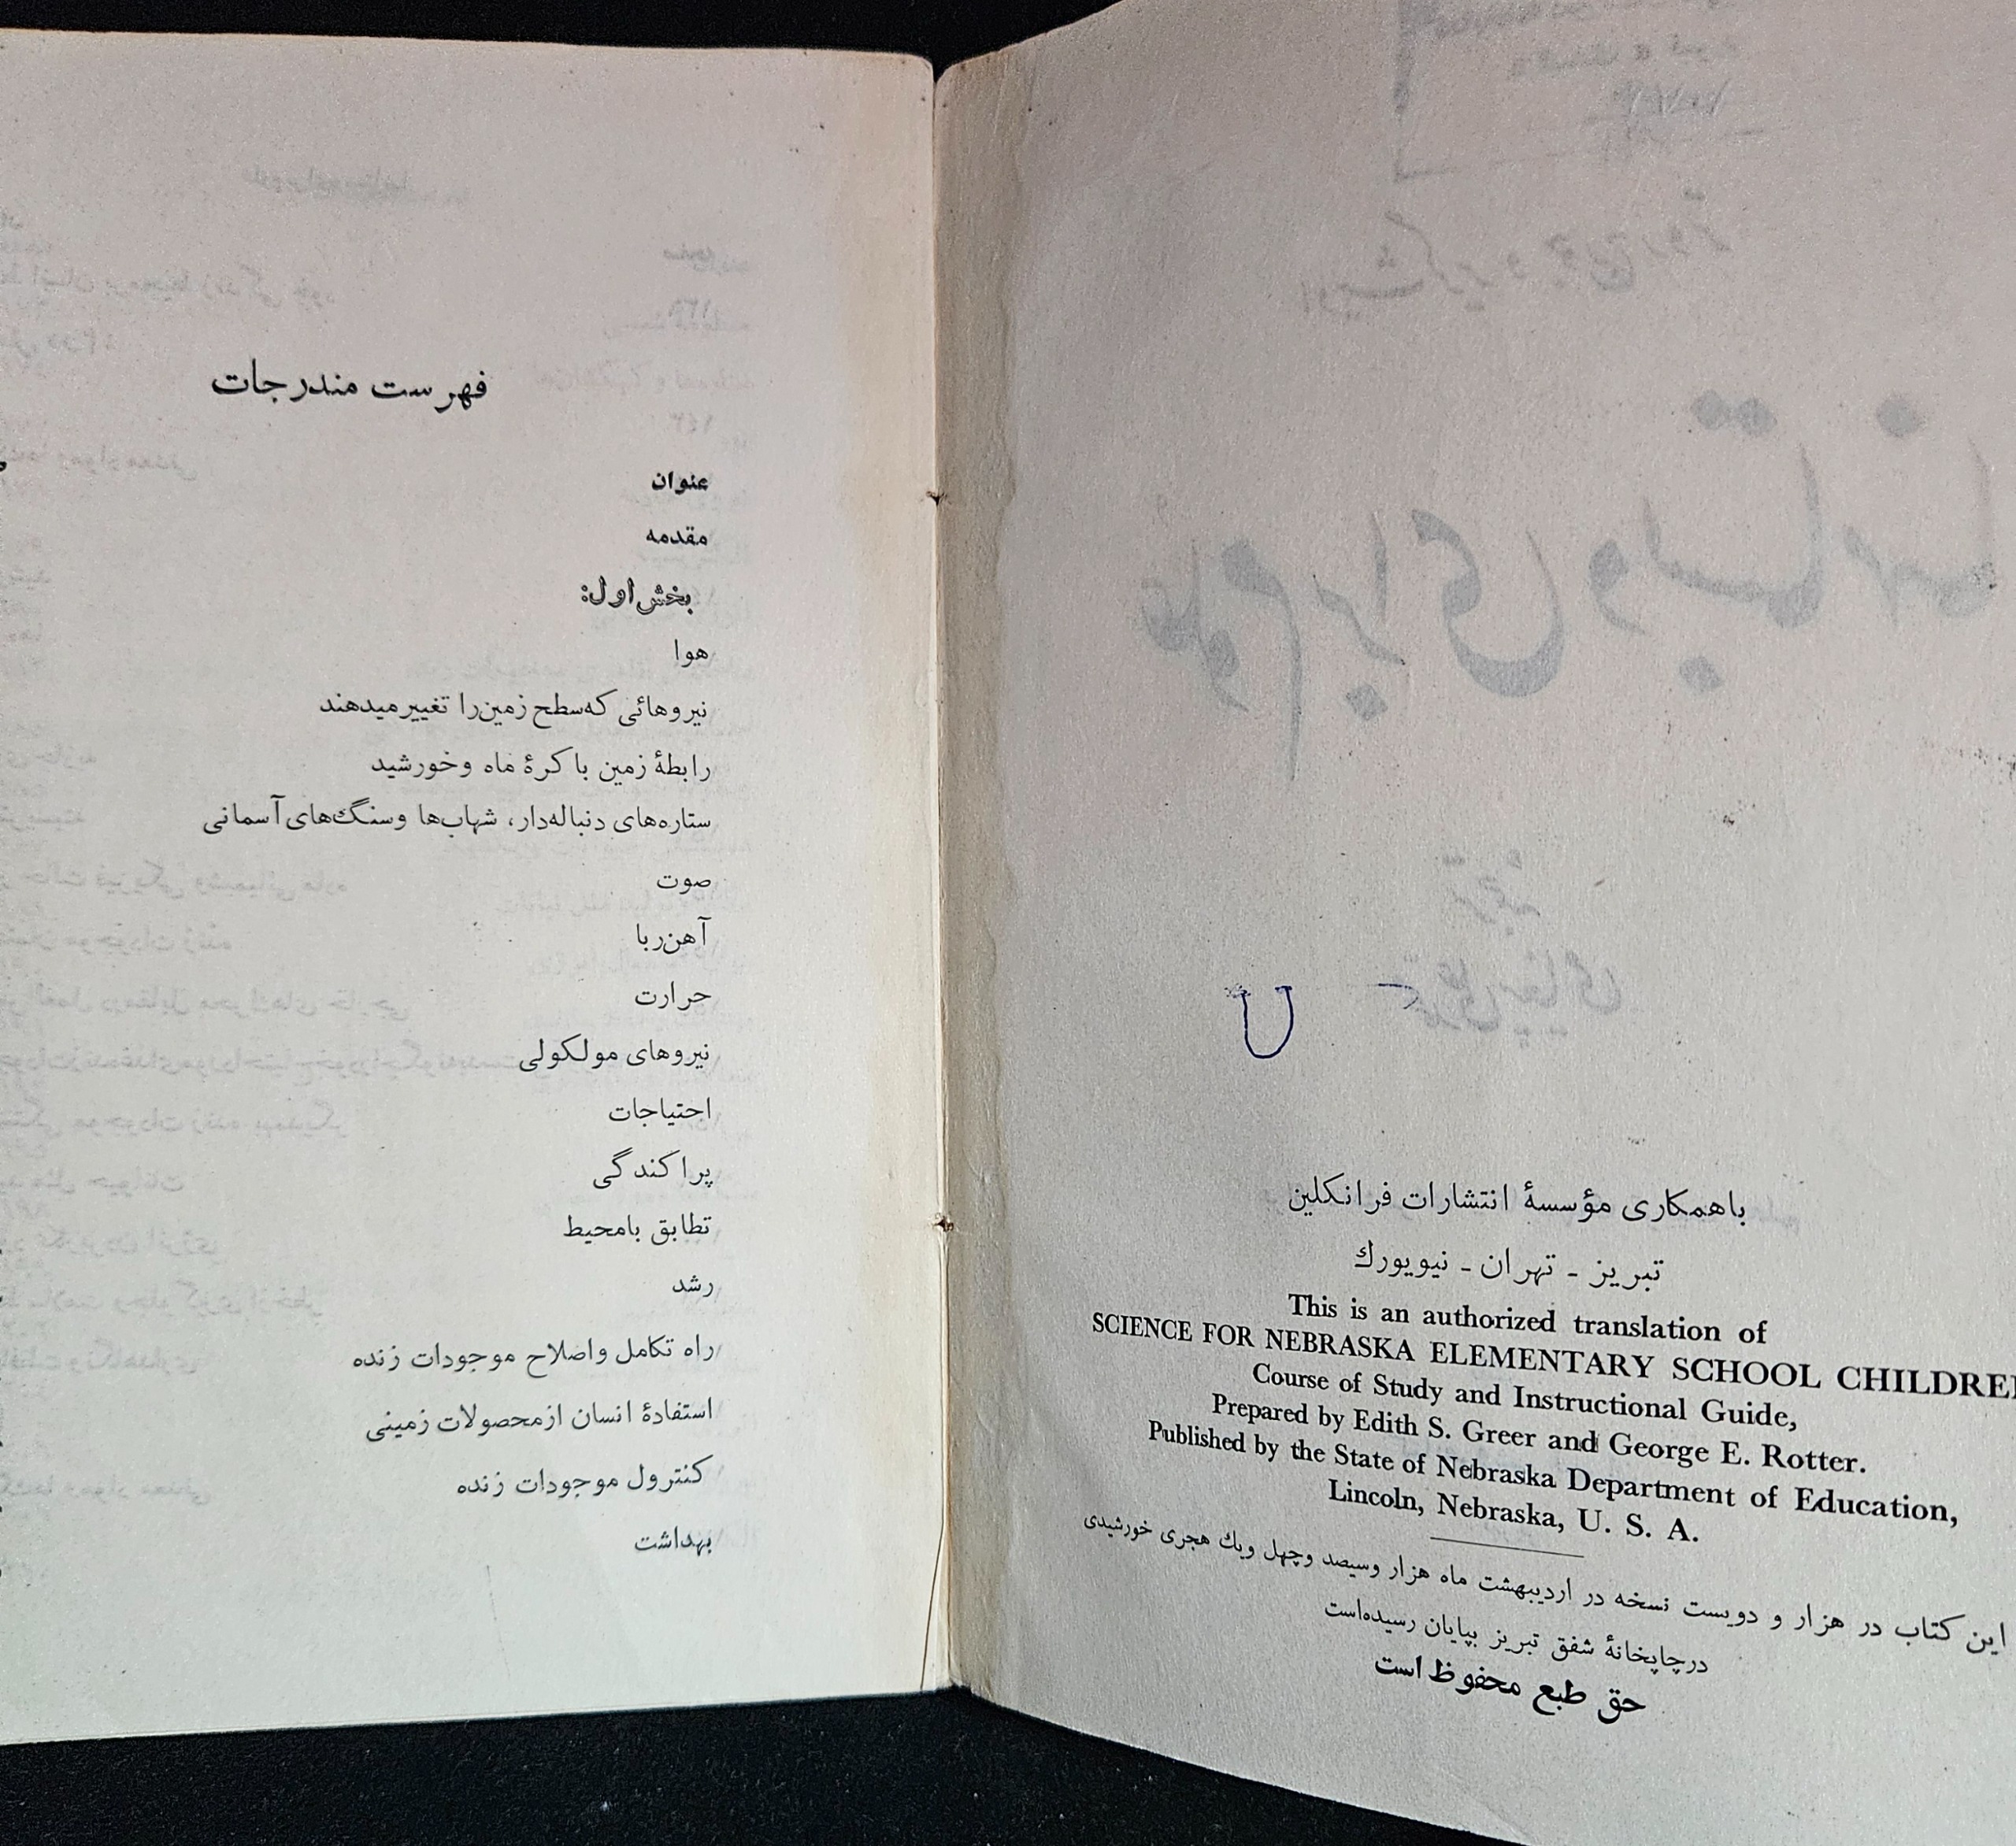 باهمکاری مؤسسهٔ انتشارات فرانکلین
تبریز ـ تهران ـ نیویورك
This is an authorized translation of
SCIENCE FOR NEBRASKA ELEMENTARY SCHOOL CHILDREN
Course of Study and Instructional Guide,
Prepared by Edith S. Greer and George E. Rotter.
Published by the State of Nebraska Department of Education,
Lincoln, Nebraska, U. S. A.
این کتاب در هزار و دویست نسخه در اردیبهشت ماه هزار وسیصد وچهل ویك هجری خورشیدی
درچاپخانهٔ شفق تبریز بپایان رسیده‌است
حق طبع محفوظ است
فهرست مندرجات
عنوان
مقدمه
بخش‌اول:
هوا
نیروهائی که‌سطح زمین‌را تغییرمیدهند
رابطهٔ زمین باکرهٔ ماه وخورشید
ستاره‌های دنباله‌دار، شهاب‌ها وسنگ‌های آسمانی
صوت
آهن‌ربا
حرارت
نیروهای مولکولی
احتیاجات
پراکندگی
تطابق بامحیط
رشد
راه تکامل واصلاح موجودات زنده
استفادهٔ انسان ازمحصولات زمینی
کنترول موجودات زنده
بهداشت